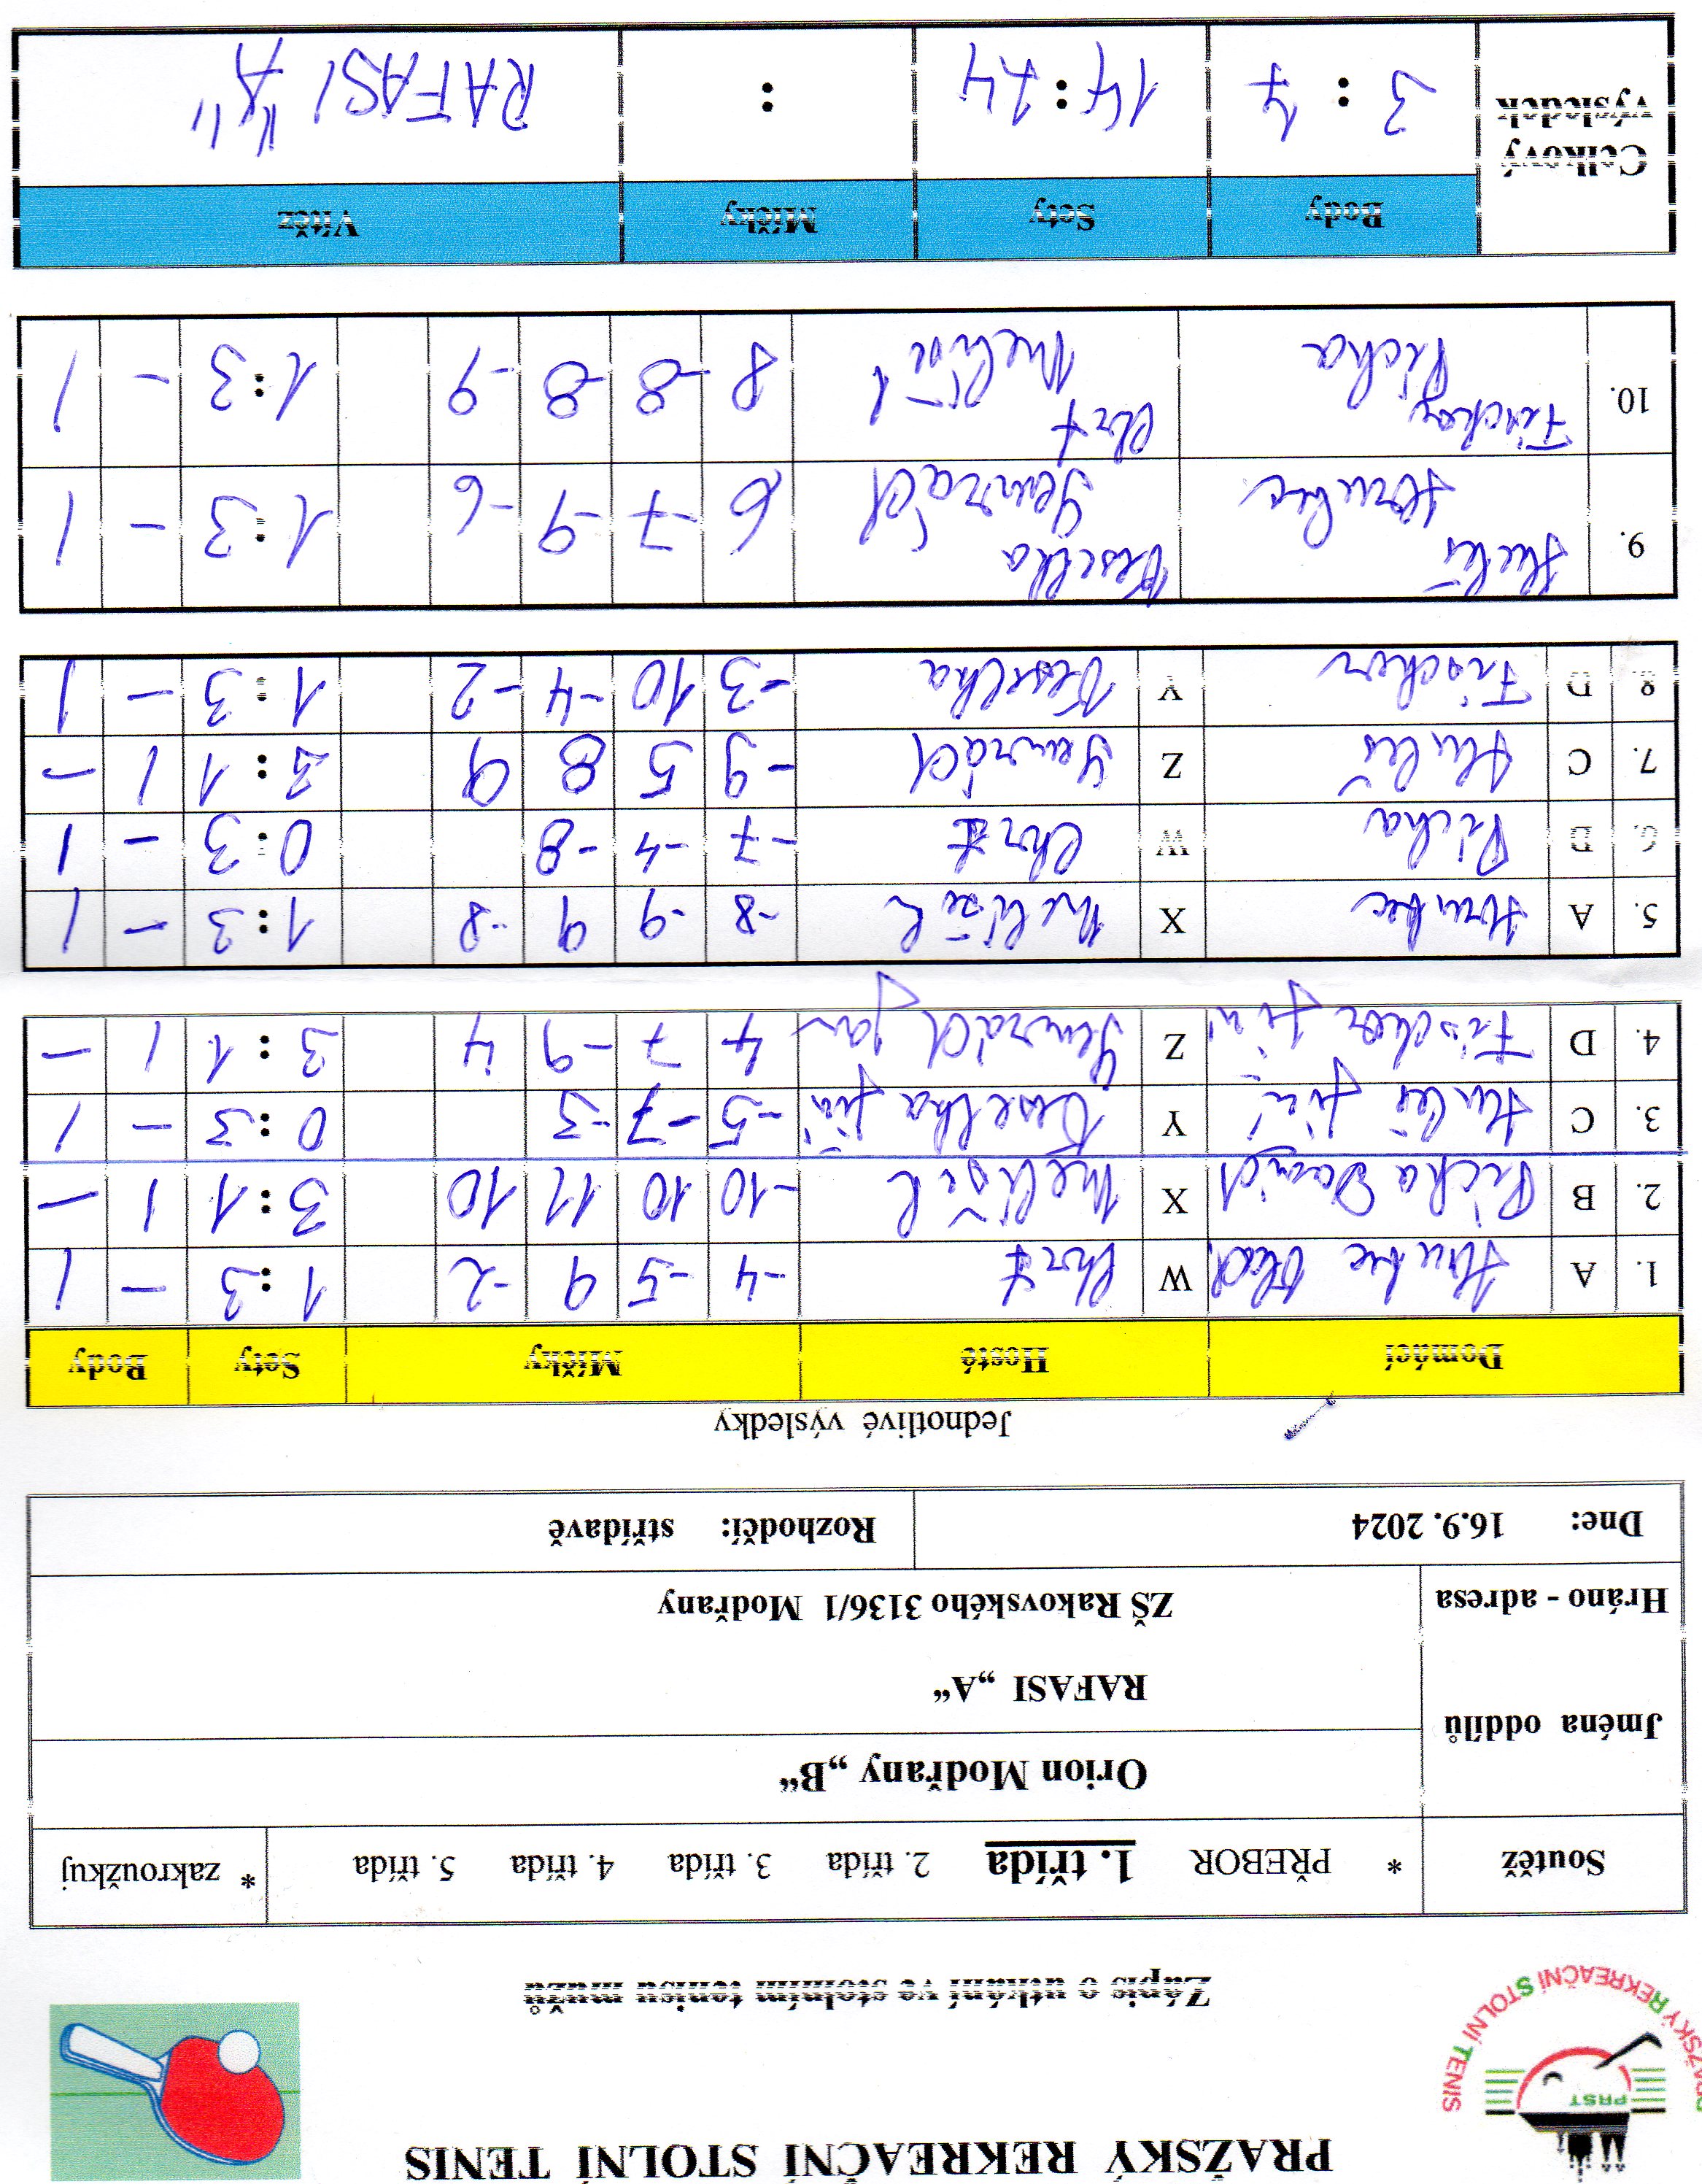 PRAŽSKÝ REKREAČNÍ STOLNÍ TENIS
PRAŽSKÝ REKREAČNÍ STOLNÍ TENIS
PRST
Zápis o utkání ve stolním tenisu mužů
Soutěž * PŘEBOR 1. třída 2. třída 3. třída 4. třída 5. třída * zakroužkuj
Jména oddílů Orion Modřany „B“
RAFASI „A“
Hráno - adresa ZŠ Rakovského 3136/1 Modřany
Dne: 16.9. 2024 Rozhodčí: střídavě
Jednotlivé výsledky
Domácí Hosté Míčky Sety Body
1. A Hrubec Vlad. W Chrt -4 -5 9 -2 1:3 - 1
2. B Pícha Daniel X Melišík -10 10 11 10 3:1 1 -
3. C Huleš Jiří Y Veselka Jiří -5 -7 -3 0:3 - 1
4. D Fischer Jiří Z Jan 4 7 -9 4 3:1 1 -
5. A Hrubec X Melišík -8 -9 9 -8 1:3 - 1
6. B Pícha W Chrt -7 -4 -8 0:3 - 1
7. C Huleš Z -9 5 8 9 3:1 1 -
8. D Fischer Y Veselka -3 10 -4 -2 1:3 - 1
9. Huleš Hrubec Veselka 6 -7 -9 -6 1:3 - 1
10. Fischer Pícha Chrt Melišík 8 -8 -8 -9 1:3 - 1
Celkový výsledek Body Sety Míčky Vítěz
3:7 14:24 : RAFASI "A"